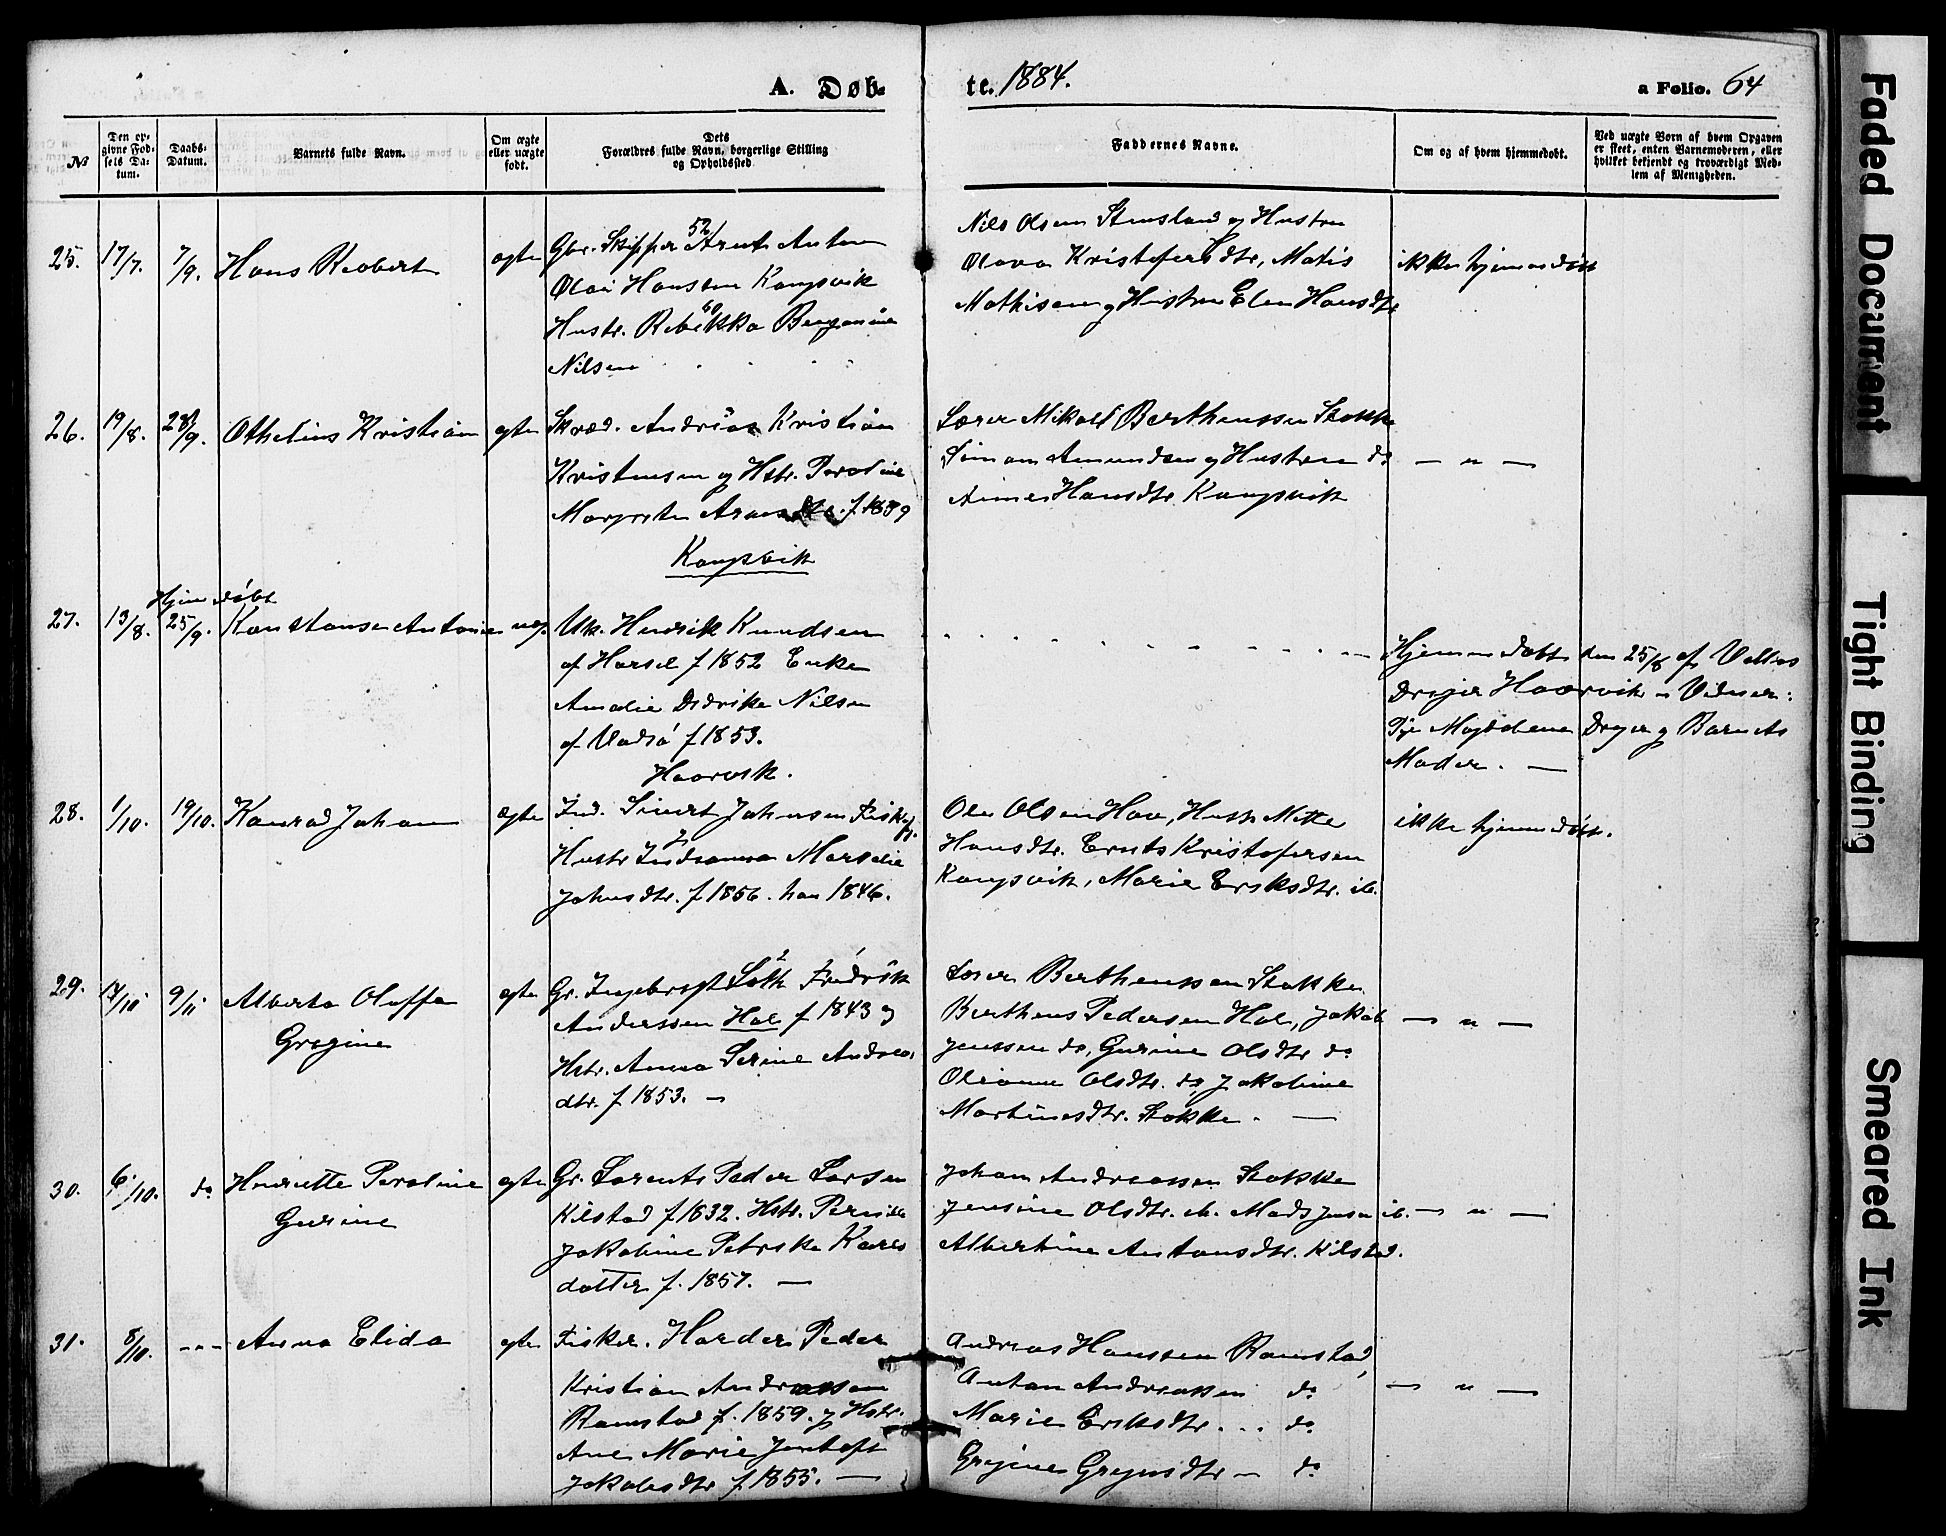 A. Døb-
te. 1884.
a Folio. 64
№
Den op-
givne Fød-
sels Da-
tum.
Daabs-
Datum.
Barnets fulde Navn.
Om ægte
eller uægte
født.
Dets
Forældres fulde Navn, borgerlige Stilling
og Opholdssted.
Faddernes Navne.
Om og af hvem hjemmedøbt.
Ved uægte Børn af hvem Opgaven
er skeet, enten Barnemoderen, eller
hvilket bekjendt og troværdigt Med-
lem af Menigheden.
25. 17/7. 7/9. Hans Reobert ægte
Gbr. Skipper Arnt Anton 52
Olai Hansen Kongsvik
Hustr. Rebekka Bergonine 60
Nilsen
Nils Olsen Stensland og Hustru
Olava Kristofersdtr, Matis
Mathisen og Hustru Elen Hansdtr
ikke hjemmedøbt
26. 19/8. 28/9. Othelius Kristian ægte
Skræd. Andrias Kristian
Kristensen og Hstr. Peroline
Margrete Arnesdtr. f. 1839
Kongsvik
Lærer Mikael Berthenssen Stokke
Simon Amundsen og Hustru do
Anne Hansdtr Kongsvik
— " —
27. 13/8. Hjemdøbt
25/9. Konstanse Antonie uæg.
Uk. Hendrik Knudsen
af Hassel f 1852 Enke
Amalie Didrike Nilsen
af Vadsø f 1853.
Haarvik.
Hjemmedøbt den 25/8 af
Dreyer Haarvik
Magdalena Dreyer og Barnets
Moder. —
28. 1/10. 19/10. Konrad Johan ægte
Ind. Sivert Johnsen Fiskef.
Hustr Indianna Marselie
Johnsdtr. f 1856. han 1846.
Ole Olsen Hov, Hustr Mette
Hansdtr. Ernts Kristofersen
Kongsvik, Marie Eriksdtr. ib.
ikke hjemmedøbt.
29. 14/10 9/11 Alberta Oluffa
Gregine
ægte
Gr. Ingebrigt Soth Fredrik
Anderssen Hol f 1843 og
Hstr. Anna Serine Andreas
dtr. f 1853. —
Lærer Berthenssen Stokke
Berthens Pedersen Hol, Jakob
Jenssen do, Gurine Olsdtr do
Oleanne Olsdtr. do Jakobine
Martinesdtr. Stokke. —
— " —
30. 6/10. do Henriette Peroline
Gurine
ægte
Gr. Lorents Peder Larsen
Kilstad f 1832. Hstr. Pernille
Jakobine Petrike Kares
datter f. 1857. —
Johan Andreassen Stokke
Jensine Olsdtr. do. Mads Jensen ib.
Albertine Antonsdtr. Kilstad.
— " —
31. 8/10. --- Anna Elida ægte
Fisker. Harder Peder
Kristian Andreassen
Ramstad f. 1859. og Hstr.
Ane Marie Jentoft
Jakobsdtr f 1855. —
Andreas Hanssen Ramstad,
Anton Andreassen do
Marie Eriksdtr... do
Gregine Gregusdtr — do
— " —
Faded Document
Tight Binding
Smeared Ink